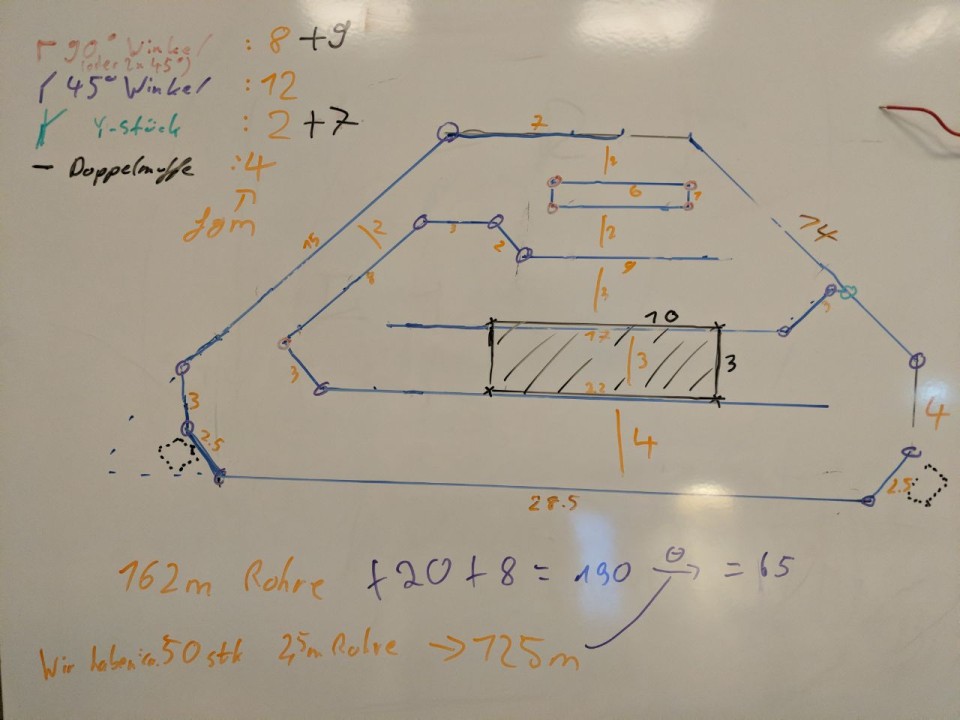 90° Winkel : 8 + 9
(oder 2x 45°)
45° Winkel : 12
Y-Stück : 2 + 7
— Doppelmuffe : 4
7
2
6
1
14
15
2
3
2
2
8
9
3
10
17
3
3
3
22
3
4
4
2.5
2.5
28.5
162m Rohre + 20 + 8 = 190 = 65
Wir haben ca. 50 stk 2,5m Rohre → 125m